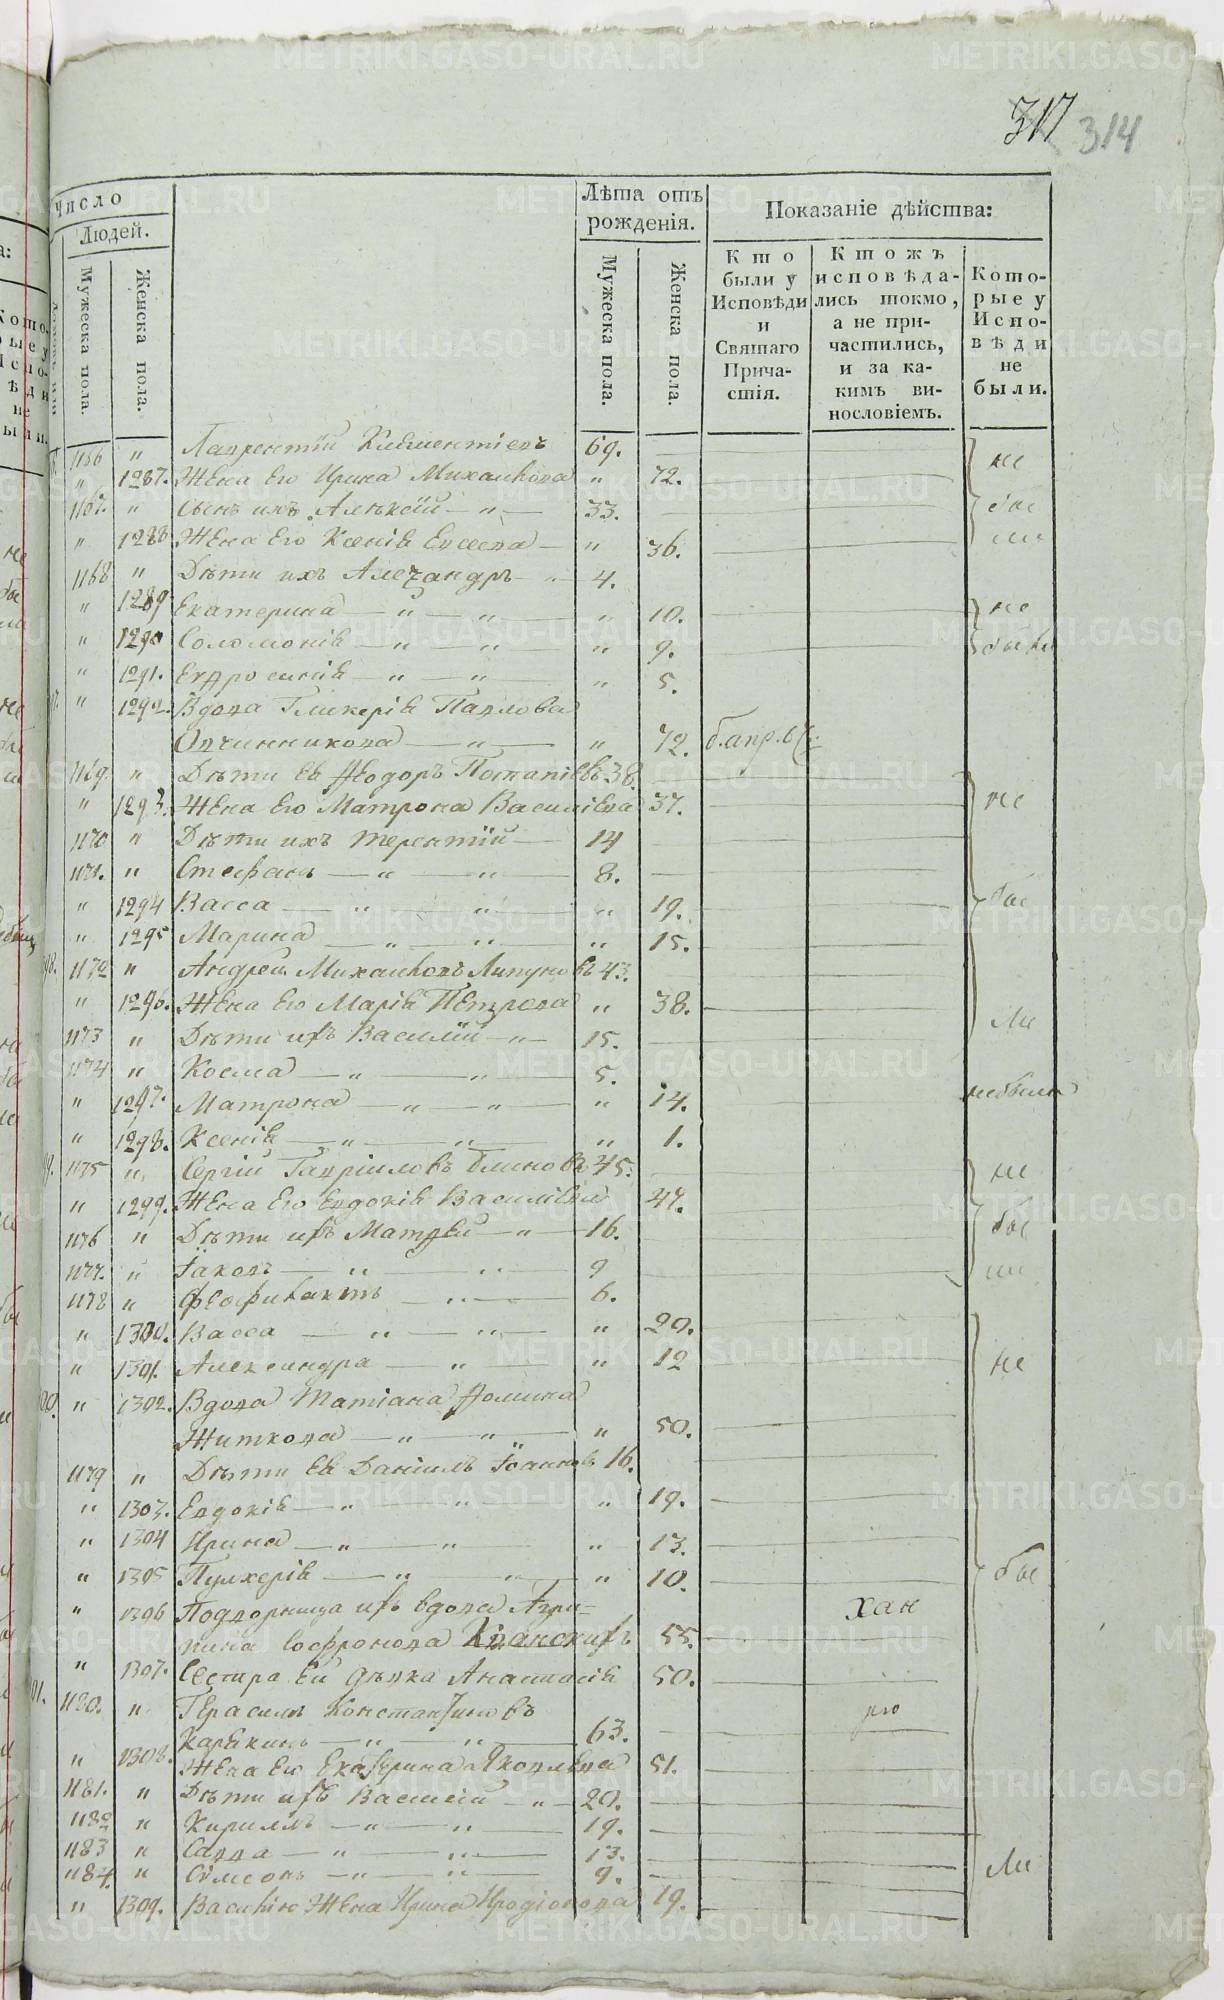 317 314
Число
Людей.
Мужеска пола.
Женска пола.
Лѣта отъ рожденія.
Мужеска пола.
Женска пола.
Показаніе дѣйства:
Кто были у Исповѣди и Святаго Причастія.
Ктожъ исповѣдались токмо, а не причастились, и за какимъ винословіемъ.
Которые у Исповѣди не были.
1166 " Лаврентїй Климентіевъ 69.
" 1287. Жена Его Ирина Михайлова " 72.
1167. " Сынъ ихъ Алѣксїй — " — 33.
" 1288 Жена Его Ксенія Евсеева — " 36.
1168 " Дѣти ихъ Алеѯандръ — " 4.
" 1289 Екатерина — " — " — " 10.
" 1290 Соломонія — " — " — " 9.
" 1291. Евдросинія — " — " — " 5.
" 1292. Вдова Гликерія Павлова
Овчинникова — " — " 72. б. апр. 6
1169. " Дѣти Ея Ѳеодоръ Потапіевъ 38.
" 1293. Жена Его Матрона Василіева 37.
1170 " Дѣти ихъ Терентїй — 14
1171. " Стефанъ — " — " — 8.
" 1294 Васса — " — " — " 19.
" 1295 Марина — " — " — " 15.
98. 1172 " Андрей Михайловъ Липуновъ 43.
" 1296. Жена Его Марія Петрова " 38.
1173 " Дѣти ихъ Василїй — " — 15.
1174 " Косма — " — " — 5.
" 1297. Матрона — " — " — " 14. небыли
" 1298. Ксенія — " — " — " 1.
99. 1175 " Сергїй Гавріиловъ Блиновъ 45.
" 1299. Жена Его Евдокія Василіева 47.
1176 " Дѣти ихъ Матвей — " — 16.
1177. " Іаковъ — " — " — 9
1178 " Ѳеофилактъ — " — 6.
" 1300. Васса — " — " — " 20.
" 1301. Александра — " — " 12
00. " 1302. Вдова Татіана Ѳомина
Житкова — " — " — " 50.
1179 " Дѣти Ея Даніилъ Іоанновъ 16.
" 1303. Евдокія — " — " — " 19.
" 1304 Ирина — " — " — " 13.
" 1305 Пулхерія — " — " — " 10.
" 1306 Подворница ихъ вдова Агри-
пина Софронова 55.
" 1307. Сестра Ей дѣвка Анастасія 50.
01. 1180. " Герасимъ Константиновъ
Карякинъ — " — " — 63.
" 1308. Жена Его Екатерина Яковлева 51.
1181. " Дѣти ихъ Василїй — " — 20.
1182 " Кириллъ — " — " — 19.
1183 " Савва — " — " — 13.
1184. " Сѵмеонъ — " — " — 9.
" 1309. Василію Жена Ирина Иродіонова 19.
не
бы
ли
не
были
не
бы
ли
не
бы
ли
не
бы
ли
METRIKI.GASO-URAL.RU